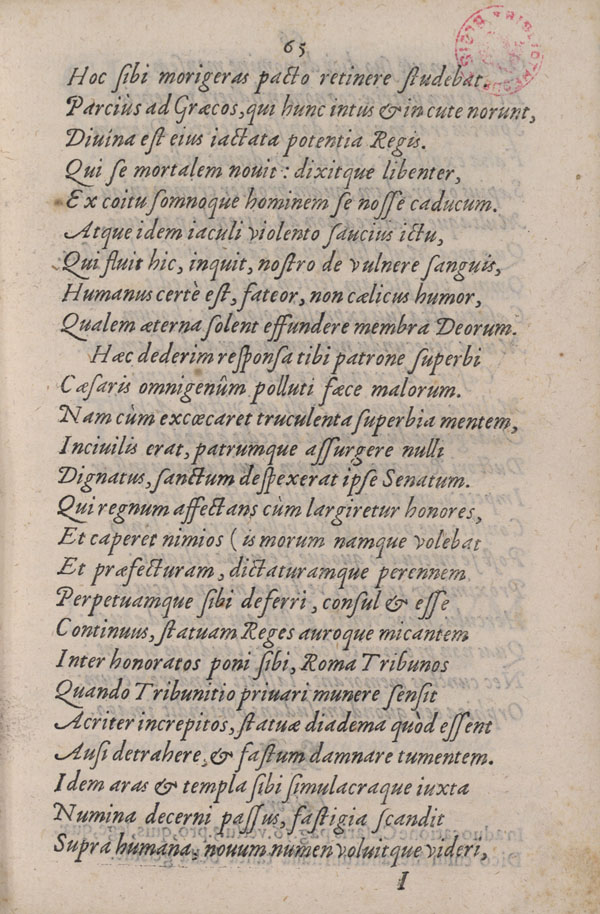 65
Hoc ſibi morigeras pacto retinere ſtudebat.
Parciùs ad Græcos, qui hunc intùs & in cute norunt,
Diuina eſt eius iactata potentia Regis.
Qui ſe mortalem nouit : dixitque libenter,
Ex coitu ſomnoque hominem ſe noſſe caducum.
Atque idem iaculi violento ſaucius ictu,
Qui fluit hic, inquit, noſtro de vulnere ſanguis,
Humanus certè eſt, fateor, non cælicus humor,
Qualem æterna ſolent effundere membra Deorum.
Hæc dederim reſponſa tibi patrone ſuperbi
Cæſaris omnigenûm polluti fæce malorum.
Nam cùm excœcaret truculenta ſuperbia mentem,
Inciuilis erat, patrumque aſſurgere nulli
Dignatus, ſanctum deſpexerat ipſe Senatum.
Qui regnum affectans cùm largiretur honores,
Et caperet nimios (is morum namque volebat
Et præfecturam, dictaturamque perennem
Perpetuamque ſibi deferri, conſul & eſſe
Continuus, ſtatuam Reges auroque micantem
Inter honoratos poni ſibi, Roma Tribunos
Quando Tribunitio priuari munere ſenſit
Acriter increpitos, ſtatuæ diadema quòd eſſent
Auſi detrahere, & faſtum damnare tumentem.
Idem aras & templa ſibi ſimulacraque iuxta
Numina decerni paſſus, faſtigia ſcandit
Supra humana, nouum numen voluitque videri,
I